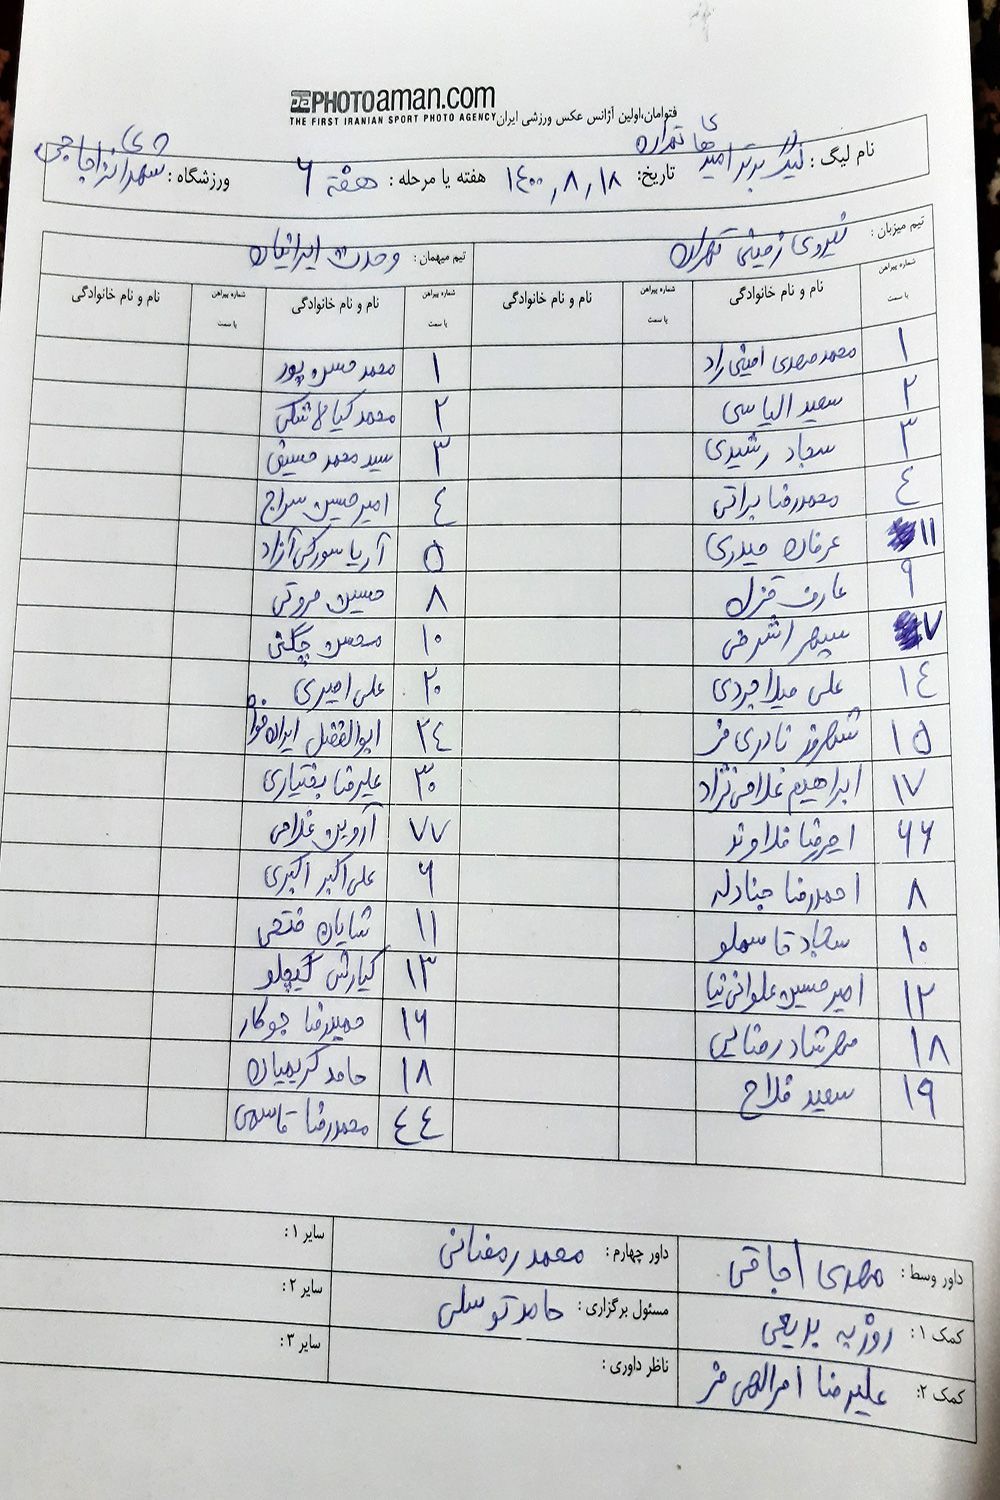 PHOTOaman.com
THE FIRST IRANIAN SPORT PHOTO AGENCY
فتوامان،اولین آژانس عکس ورزشی ایران
نام لیگ : لیگ برتر امیدهای تهران
تاریخ: ۱۴۰۰,۸,۱۸
هفته یا مرحله : هفته ۶
ورزشگاه : شهدای
تیم میزبان : نیروی زمینی تهران
تیم میهمان : وحدت ایرانیان
شماره پیراهن یا سمت نام و نام خانوادگی شماره پیراهن یا سمت نام و نام خانوادگی شماره پیراهن یا سمت نام و نام خانوادگی شماره پیراهن یا سمت نام و نام خانوادگی
۱ محمدمهدی امینی راد ۱ محمد حسن پور
۲ سعید الیاسی ۲ محمد کیا
۳ سجاد رشیدی ۳ سید محمد حسینی
۴ محمدرضا براتی ۴ امیرحسین سراج
۱۱ عرفان حیدری ۵ آریا آزاد
۹ عارف قزل ۸ حسین مروتی
۷ سپهر اشرفی ۱۰ محسن چگنی
۱۴ علی میلاجردی ۲۰ علی امیری
۱۵ شهروز نادری فر ۲۴ ابوالفضل ایران خواه
۱۷ ابراهیم غلامی نژاد ۳۰ علیرضا بختیاری
۶۶ امیررضا فلاوند ۷۷ آروین غلامی
۸ احمدرضا جنادله ۶ علی اکبر اکبری
۱۰ سجاد قاسملو ۱۱ شایان فتحی
۱۲ امیرحسین علوانی نیا ۱۳ کیارش گیچلو
۱۸ مهرشاد رضایی ۱۶ حمیدرضا جوکار
۱۹ سعید فلاح ۱۸ حامد کریمیان
۴۴ محمدرضا قاسمی
داور وسط : مهدی اجاقی
داور چهارم : محمد رمضانی
سایر ۱ :
کمک ۱ : روزبه بدیعی
مسئول برگزاری : حامد توسلی
سایر ۲ :
کمک ۲: علیرضا امرالهی فر
ناظر داوری :
سایر ۳ :